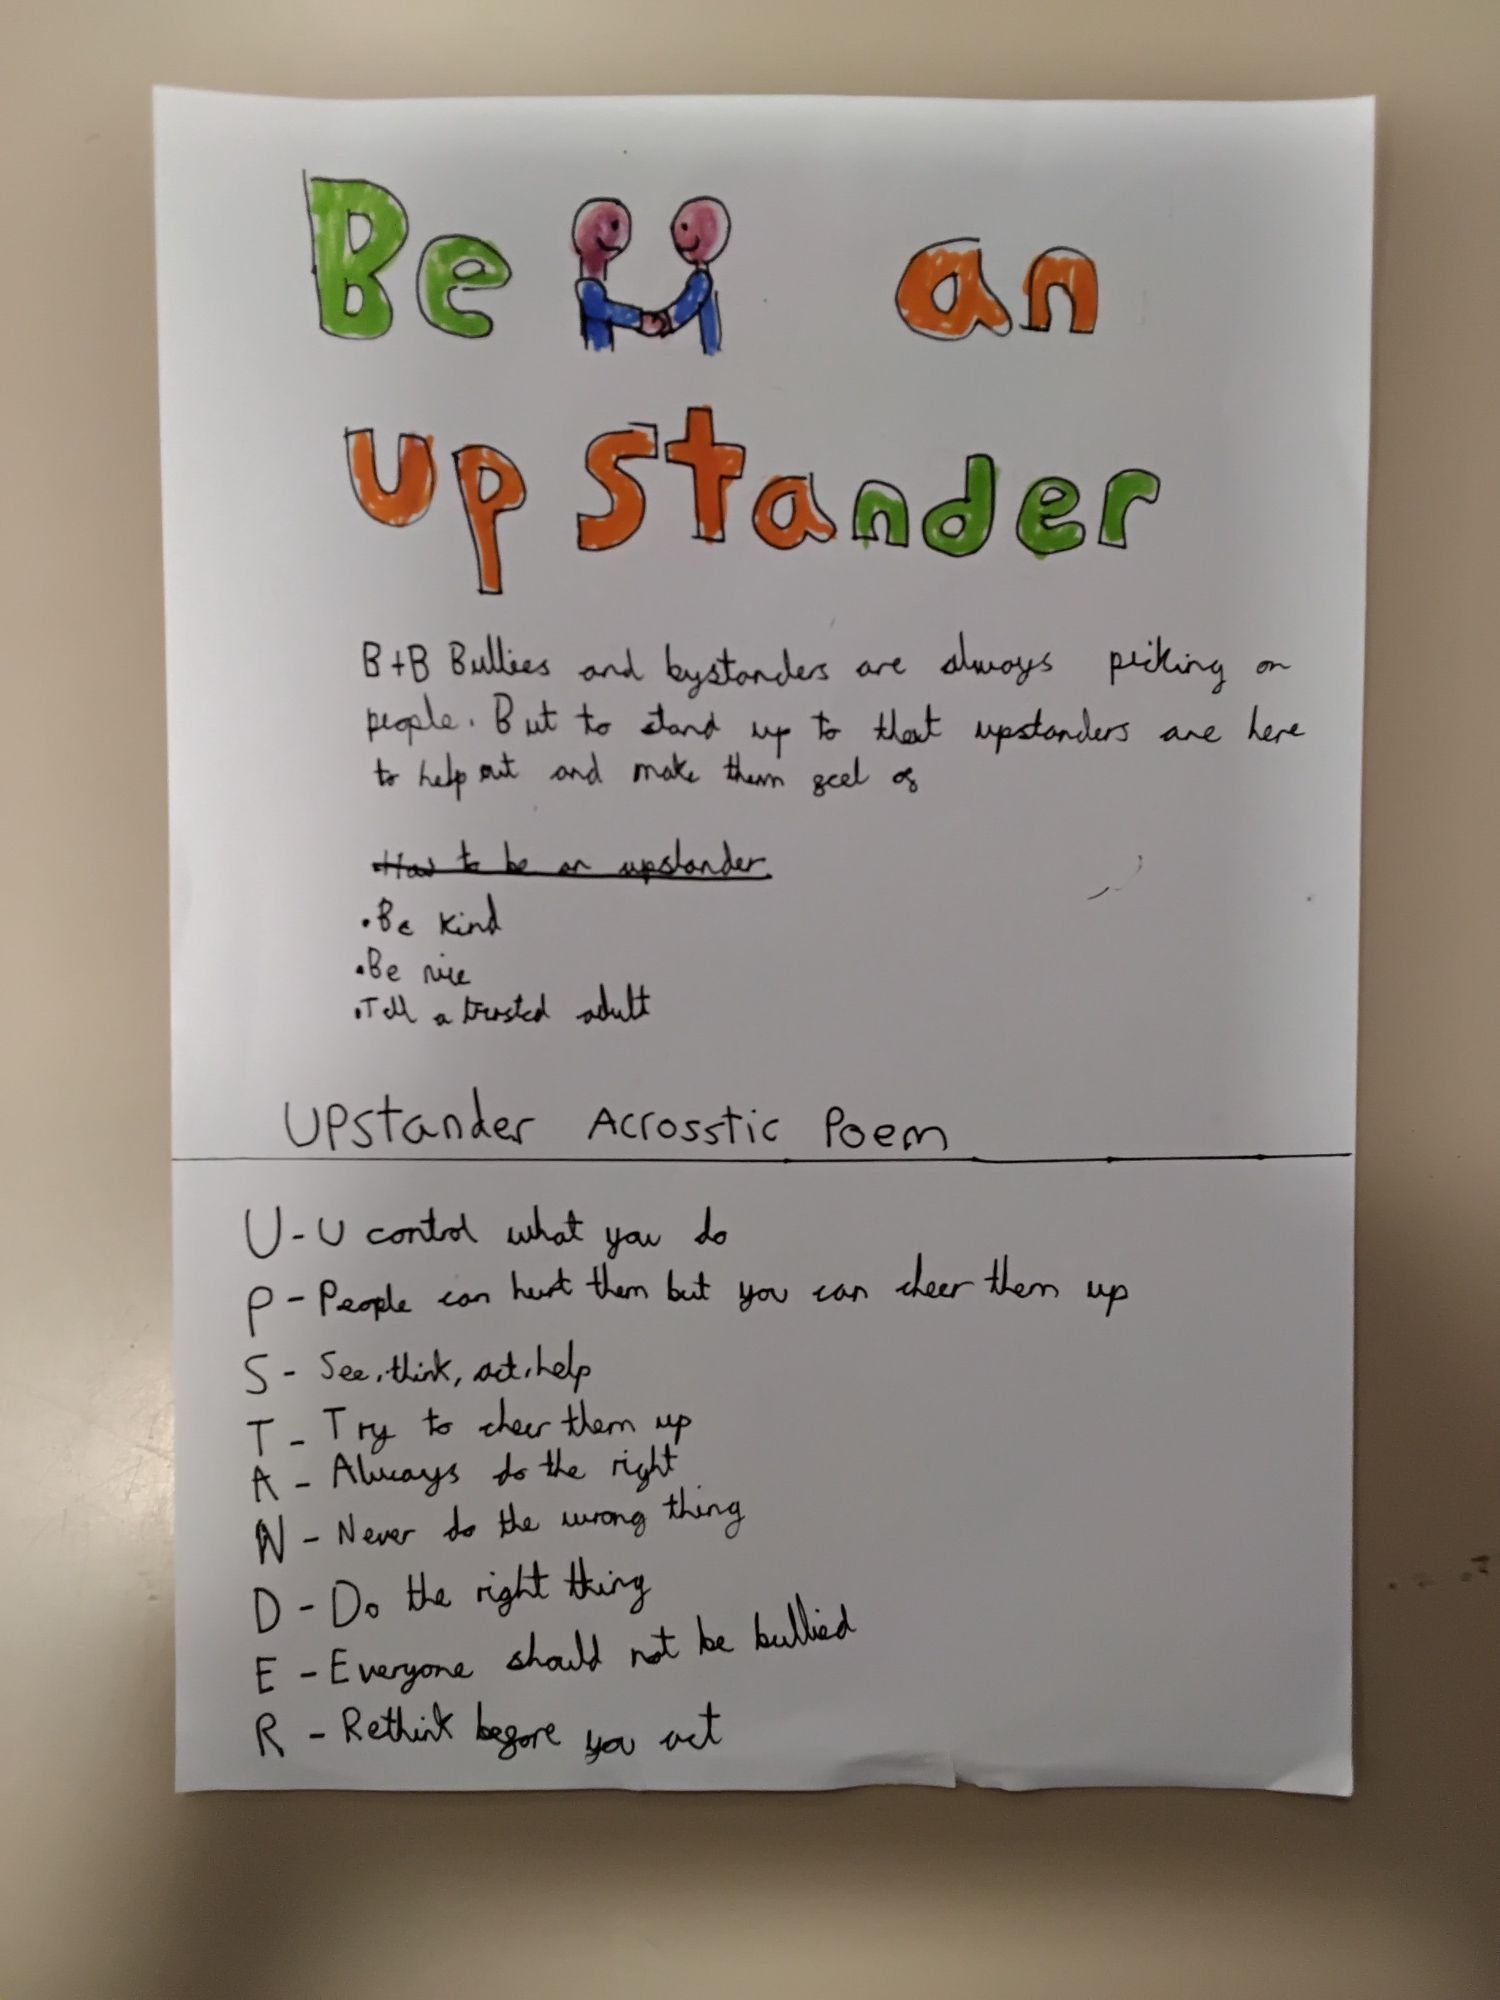 Be an
upstander
B+B Bullies and bystanders are always picking on
people. But to stand up to that upstanders are here
to help out and make them feel of
How to be an upstander
• Be kind
• Be nice
• Tell a trusted adult
UPstander Acrosstic Poem
U - U control what you do
P - People can hurt them but you can cheer them up
S - See, think, act, help
T - Try to cheer them up
A - Always do the right
N - Never do the wrong thing
D - Do the right thing
E - Everyone should not be bullied
R - Rethink before you act